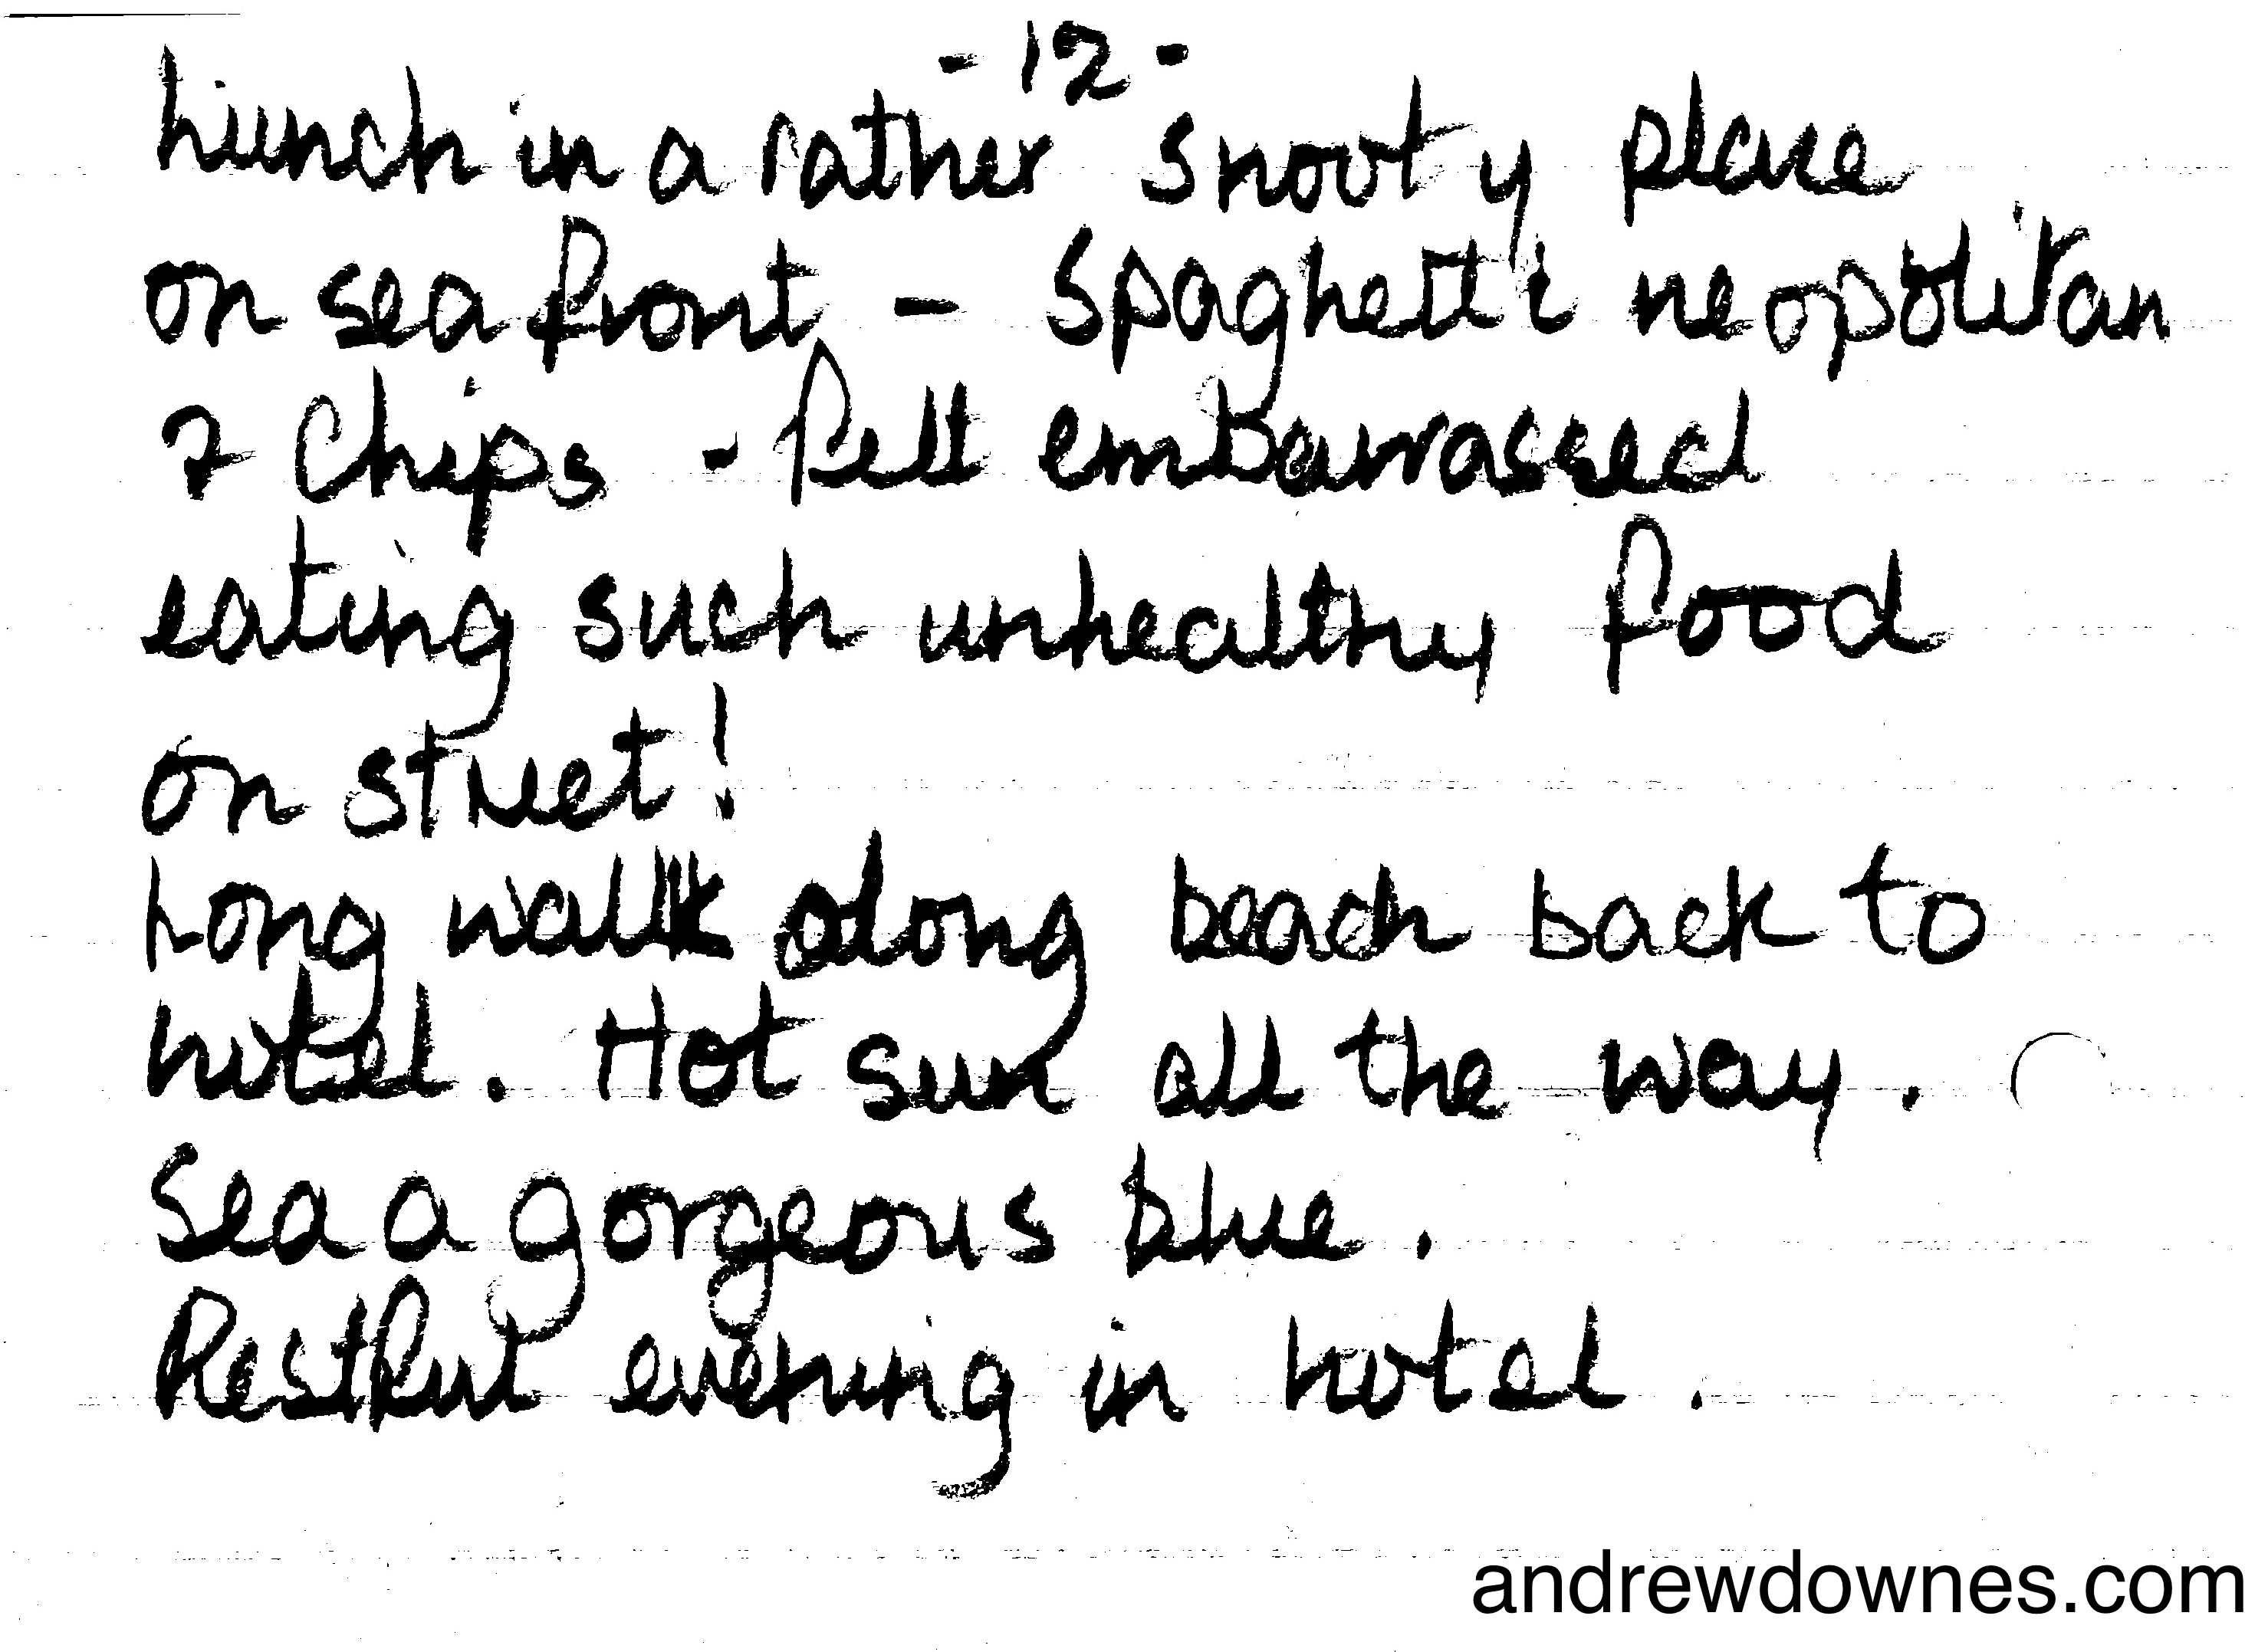 - 12 -
Lunch in a rather snooty place
on sea front - Spaghetti neopolitan
& Chips - felt embarrassed
eating such unhealthy food
on street!
Long walk along beach back to
hotel. Hot sun all the way.
Sea a gorgeous blue.
Restful evening in hotel.
andrewdownes.com